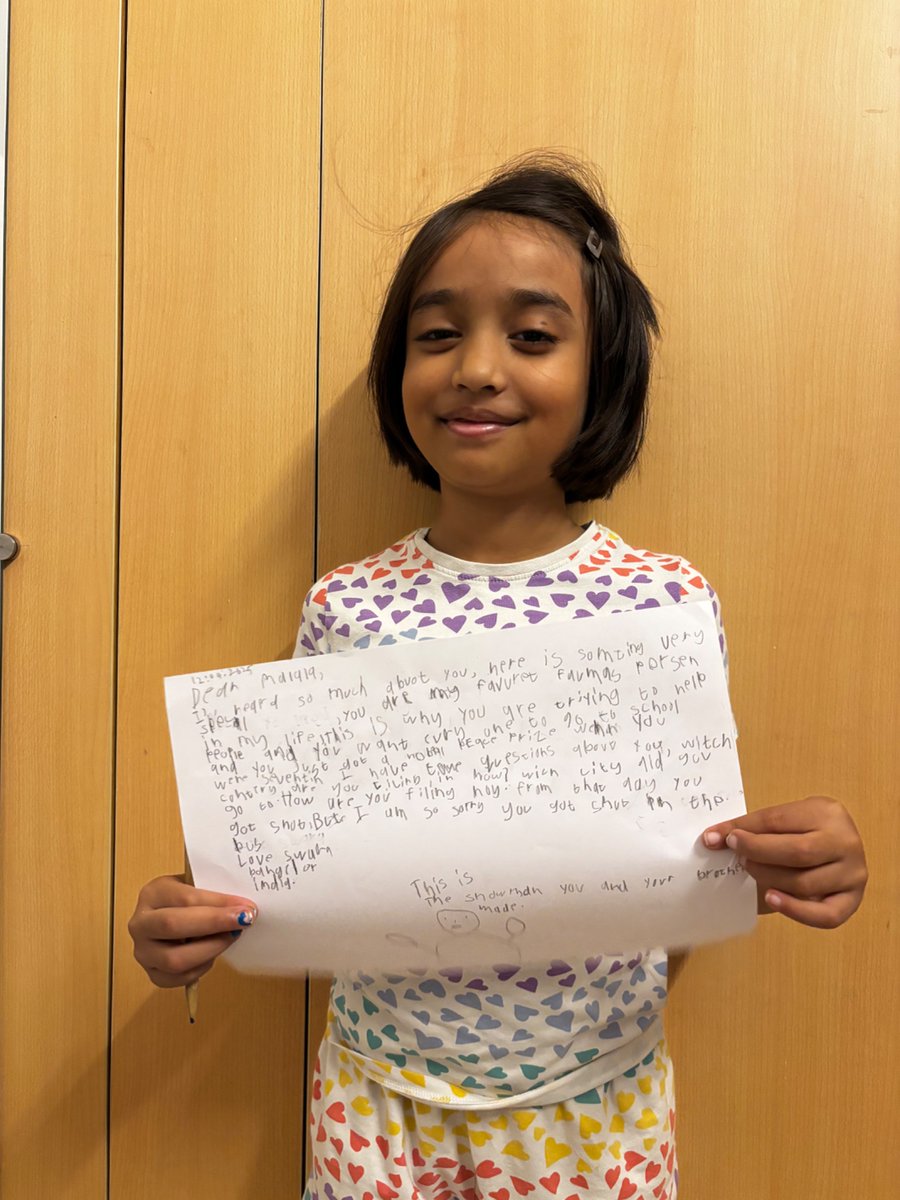 Dear Malala,
I've heard so much abuot you, here is somting very
spesal you are my favuret faumas persen
in my life, this is why you are triying to help
people and you want evry one to go to school
and you just got a nobal peace prize when you
were seventin. I have some questions about you, witch
contry are you living in now? wich city did you
go to. How are you filing noy. from that day you
got shot. But I am so sorry you got shot in the
bus
Love
bangelor
India.
This is
the snowman you and your brother
made.